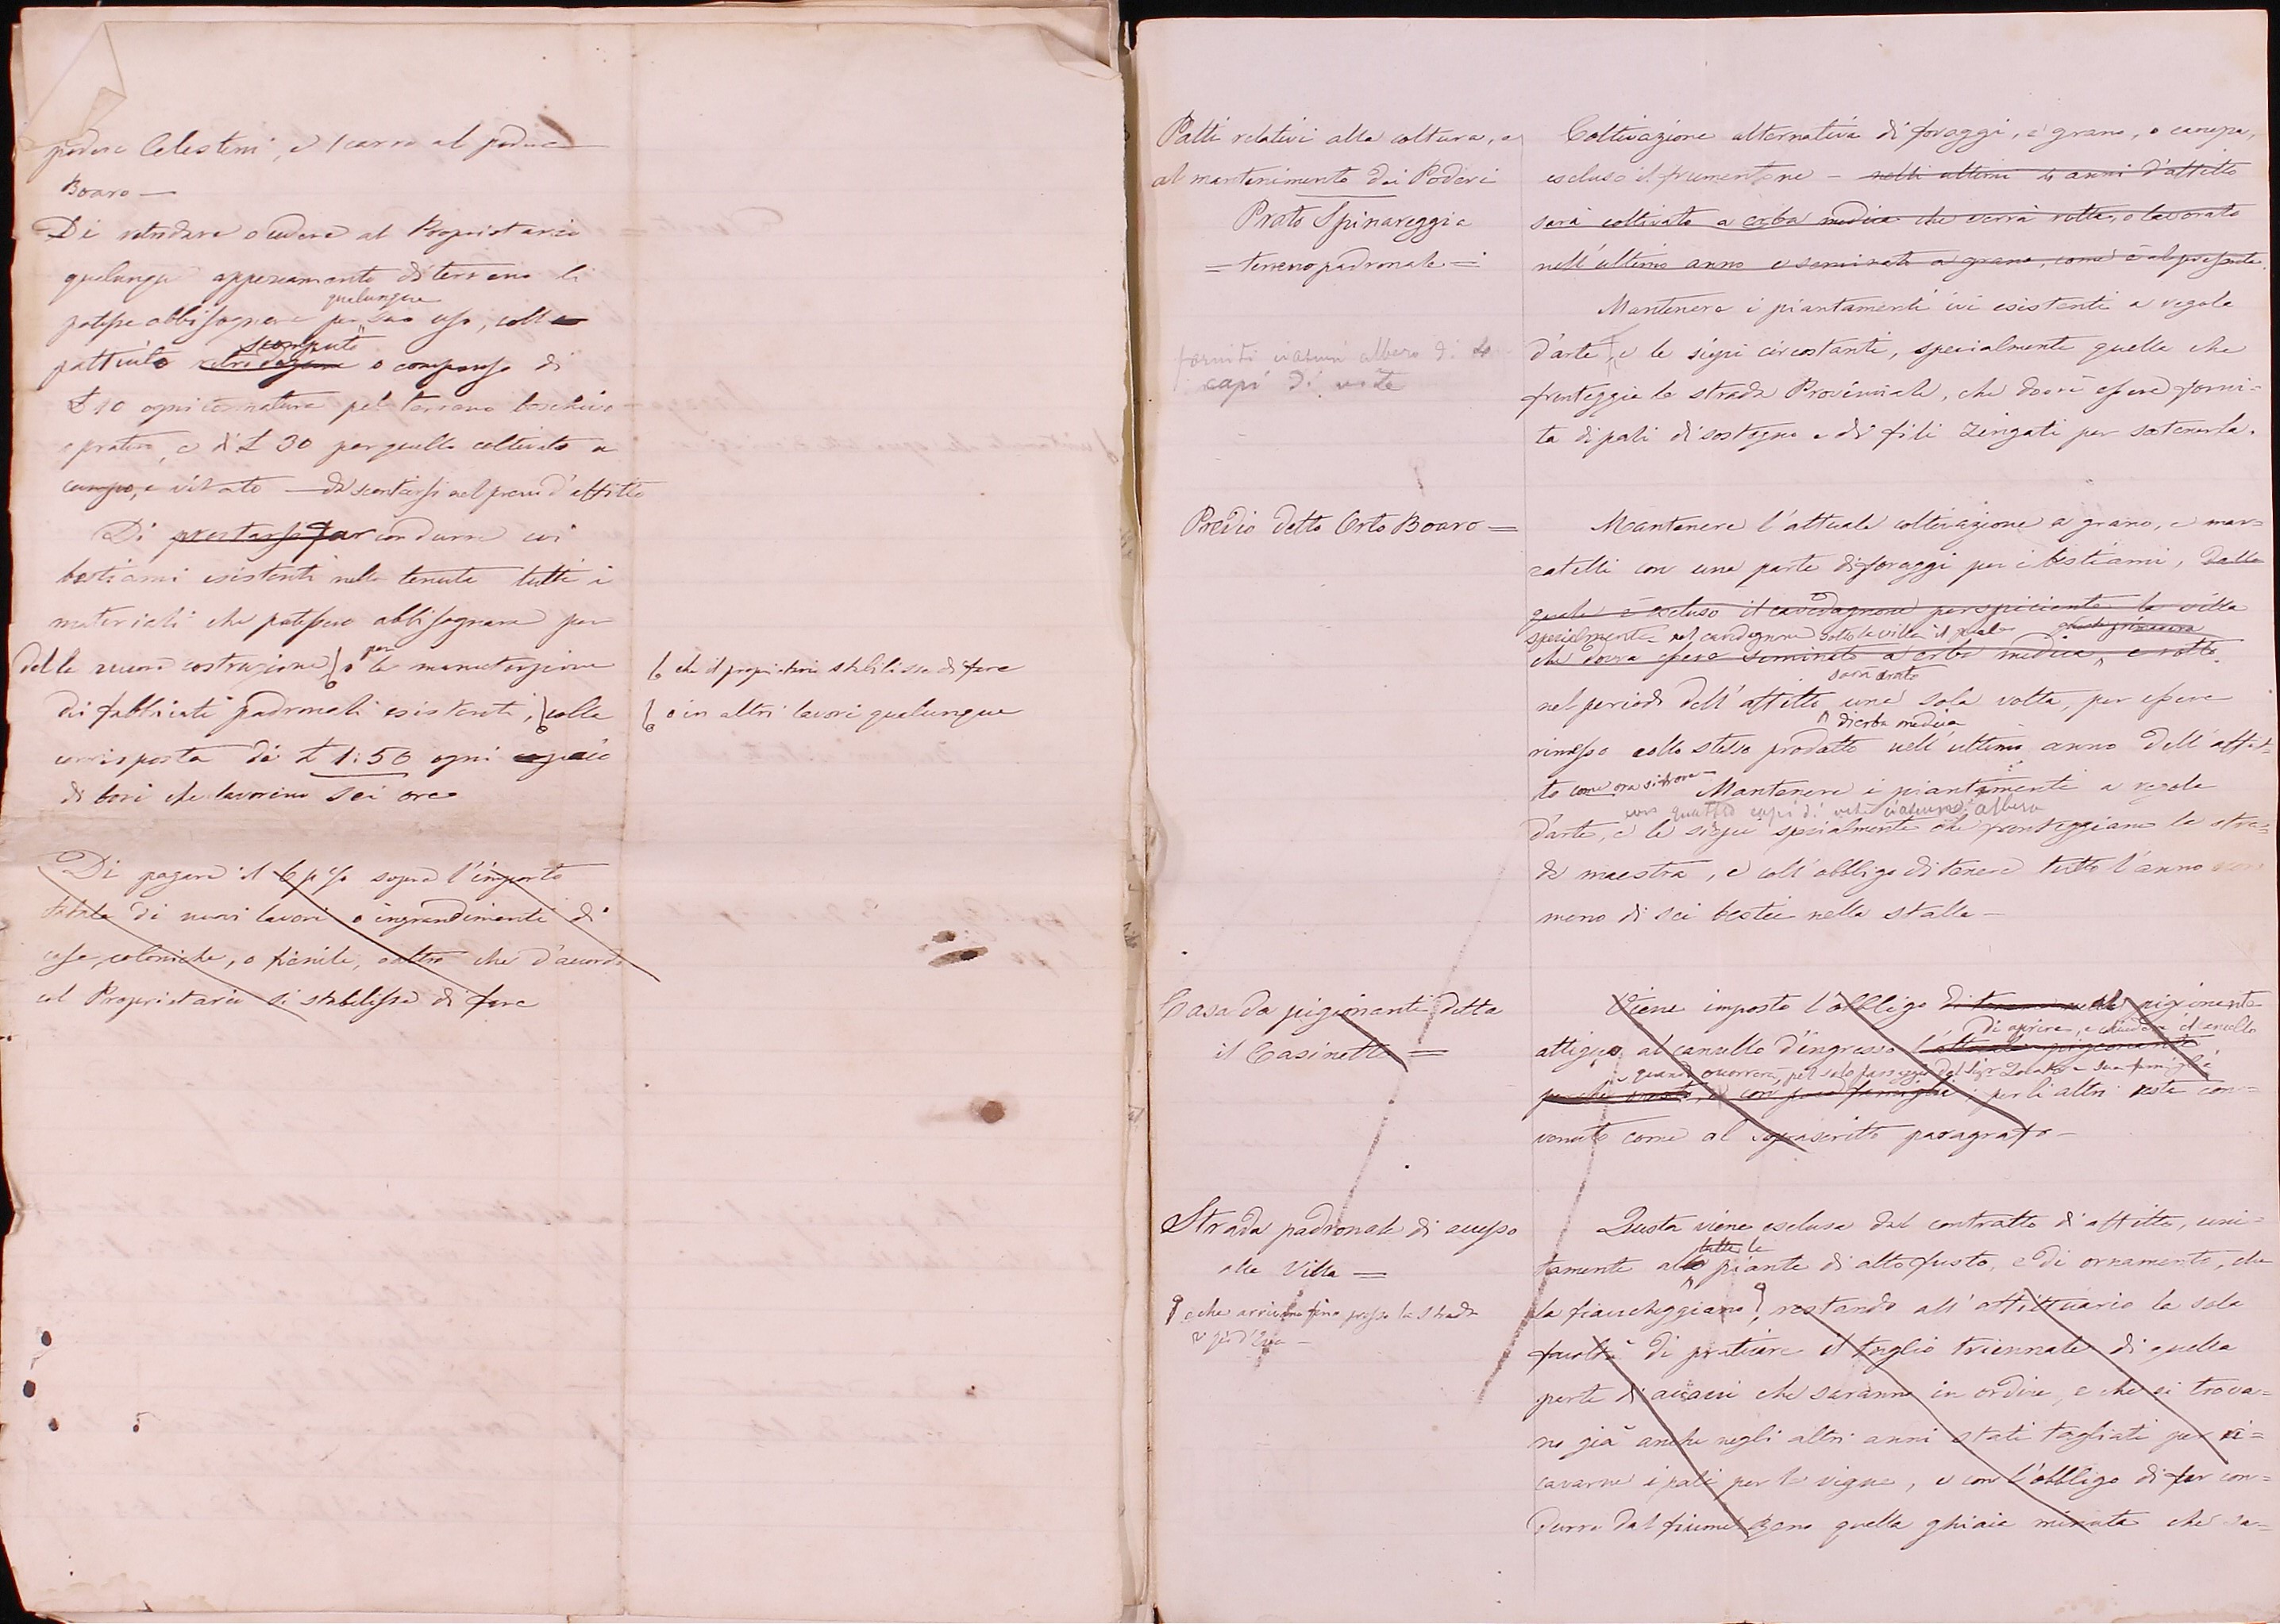 podere Celestini, e 1 carro al podere
Boaro —
Di retrodare o cedere al Proprietario
qualunque appezzamento di terreno li
qualungue
potesse abbisognare per suo uso, colla
scomputo
pattuito retrodazione o compenso di
£ 10 ogni tornatura pel terreno boschivo
o prativo, e di £ 30 per quello coltivato a
campo, e vitato — da scontarsi nel prezzo d'affitto
Di prestarsi far condurre coi
bestiami esistenti nella tenuta tutti i
materiali che potessero abbisognare per
per
delle nuove costruzione, o la manutenzione
che il proprietario stabilisse di fare
dei fabbricati padronali esistenti, colla
o in altri lavori qualunque
corrisposta di £ 1:50 ogni
di bovi che lavorino sei ore
Di pagare il 6 p% sopra l'importo
totale di nuovi lavori o ingrandimenti di
case coloniche, o fienile, o altro che d'accordo
col Proprietario si stabilisse di fare
Patti relativi alla coltura, e
al mantenimento dei Poderi
Prato Spinareggia
= terreno padronale =
forniti ciascun albero di 4
capi di vite
Coltivazione alternativa di foraggi, e grano, o canepa,
escluso il frumentone — nelli ultimi 4 anni d'affitto
sarà coltivato a erba medica che verrà rotta, e lavorato
nell'ultimo anno e seminato a grano, come è al presente.
Mantenere i piantamenti ivi esistenti a regola
d'arte, e le siepi circostanti, specialmente quella che
fronteggia la strada Provinciale, che dovrà essere forni=
ta di pali di sostegno e di fili zingati per sostenerla.
Predio detto Orto Boaro =
Mantenere l'attuale coltivazione a grano, e mar=
zatelli con una parte di foraggi per i bestiami, dalla
quale è escluso il cavedagnone perspiciente la villa
specialmente nel cavedagnone sotto la villa il quale
che dovrà essere seminato a erba medica, e rotto
sarà arato
nel periodo dell'affitto una sola volta, per essere
di erba medica
rimesso collo stesso prodotto nell'ultimo anno dell'affit=
to come ora si trova — Mantenere i piantamenti a regola
con quattro capi di vite ciascun albero
d'arte, e le siepi specialmente che fronteggiano la stra=
da maestra, e coll'obbligo di tenere tutto l'anno non
meno di sei bestie nella stalla —
Casa da pigionanti detta
il Casinetto =
Viene imposto l'obbligo di tenere nella al pigionante
di aprire, e chiudere il cancello
attiguo al cancello d'ingresso l'attuale pigionante
quando occorrerà, pel solo passaggio del Sigr Locatore e sua famiglia
perchè onesto, e con poca famiglia, per li altri resta con=
venuto come al soprascritto paragrafo —
Strada padronale di accesso
alla Villa =
e che arrivano fino presso la strada
Questa viene esclusa dal contratto di affitto, uni=
tutte le
tamente alle piante di alto fusto, e di ornamento, che
la fiancheggiano, restando all'affittuario la sola
facoltà di praticare il taglio triennale di quella
parte di acacie che saranno in ordine, e che si trova=
no già anche negli altri anni stati tagliati per ri=
cavarne i pali per le vigne, e con l'obbligo di far con=
durre dal fiume Reno quella ghiaia minuta che sa=